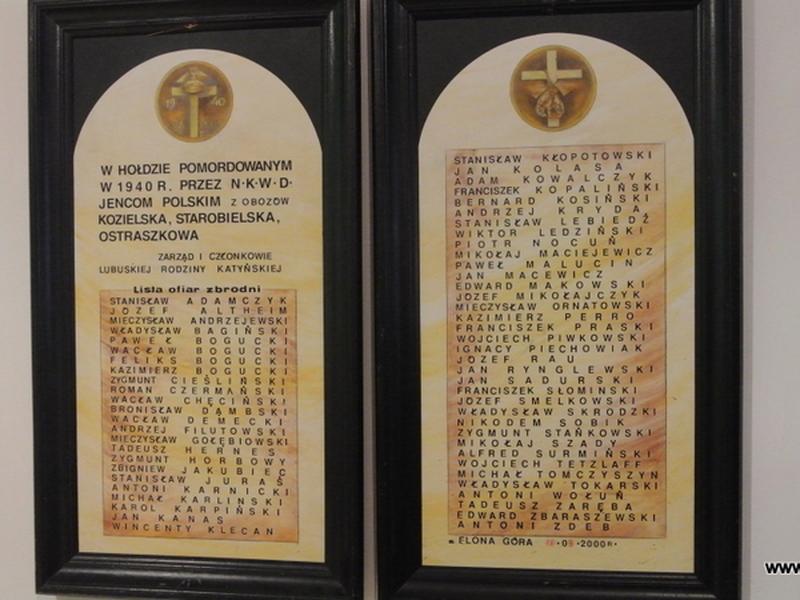 1940
W HOŁDZIE POMORDOWANYM
W 1940 R. PRZEZ N·K·W·D·
JEŃCOM POLSKIM Z OBOZÓW
KOZIELSKA, STAROBIELSKA,
OSTRASZKOWA
ZARZĄD I CZŁONKOWIE
LUBUSKIEJ RODZINY KATYŃSKIEJ
Lista ofiar zbrodni
STANISŁAW ADAMCZYK
JÓZEF ALTHEIM
MIECZYSŁAW ANDRZEJEWSKI
WŁADYSŁAW BAGIŃSKI
PAWEŁ BOGUCKI
WACŁAW BOGUCKI
FELIKS BOGUCKI
KAZIMIERZ BOGUCKI
ZYGMUNT CIEŚLIŃSKI
ROMAN CZERMAŃSKI
WACŁAW CHĘCIŃSKI
BRONISŁAW DĄMBSKI
WACŁAW DEMECKI
ANDRZEJ FILUTOWSKI
MIECZYSŁAW GOŁĘBIOWSKI
TADEUSZ HERNES
ZYGMUNT HORBOWY
ZBIGNIEW JAKUBIEC
STANISŁAW JURAŚ
ANTONI KARNICKI
MICHAŁ KARLINSKI
KAROL KARPIŃSKI
JAN KANAS
WINCENTY KLECAN
STANISŁAW KŁOPOTOWSKI
JAN KOLASA
ADAM KOWALCZYK
FRANCISZEK KOPALIŃSKI
BERNARD KOSIŃSKI
ANDRZEJ KRYDA
STANISŁAW LEBIEDŹ
WIKTOR LEDZIŃSKI
PIOTR NOCUŃ
MIKOŁAJ MACIEJEWICZ
PAWEŁ MALUCIN
JAN MACEWICZ
EDWARD MAKOWSKI
JÓZEF MIKOŁAJCZYK
MIECZYSŁAW ORNATOWSKI
KAZIMIERZ PERRO
FRANCISZEK PRASKI
WOJCIECH PIWKOWSKI
IGNACY PIECHOWIAK
JÓZEF RAU
JAN RYNGLEWSKI
JAN SADURSKI
FRANCISZEK SŁOMIŃSKI
JÓZEF SMELKOWSKI
WŁADYSŁAW SKRODZKI
NIKODEM SOBIK
ZYGMUNT STAŃKOWSKI
MIKOŁAJ SZADY
ALFRED SURMIŃSKI
WOJCIECH TETZLAFF
MICHAŁ TOMCZYSZYN
WŁADYSŁAW TOKARSKI
ANTONI WOŁUŃ
TADEUSZ ZARĘBA
EDWARD ZBARASZEWSKI
ANTONI ZDEB
ELONA GÓRA 2000R·
www